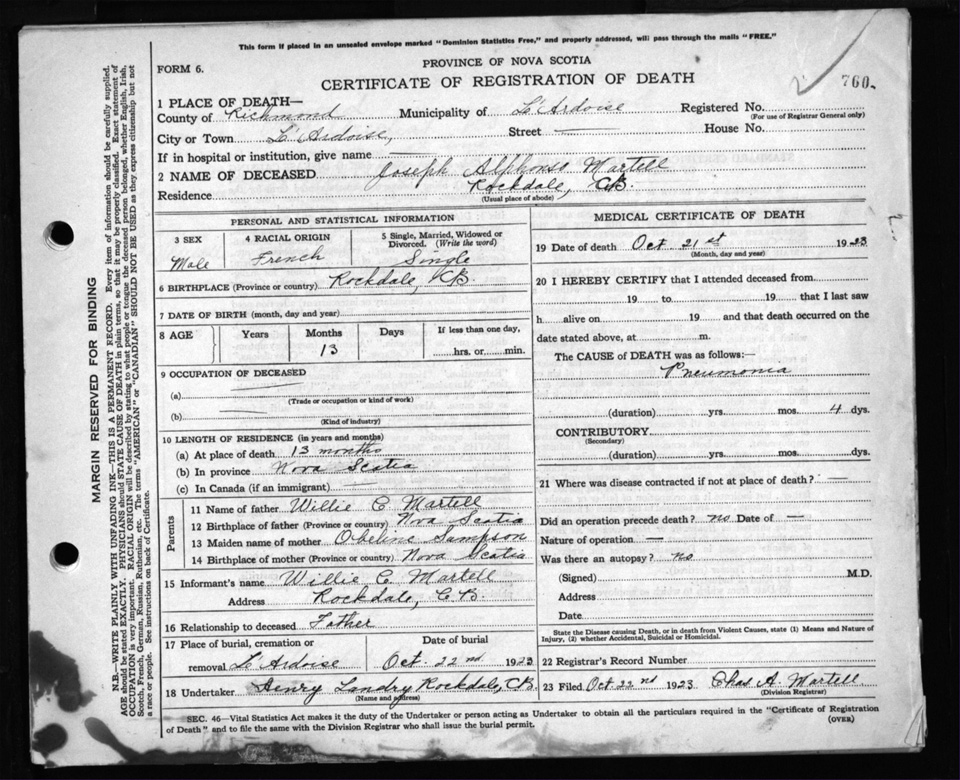 This form if placed in an unsealed envelope marked "Dominion Statistics Free," and properly addressed, will pass through the mails "FREE."
PROVINCE OF NOVA SCOTIA
FORM 6.
CERTIFICATE OF REGISTRATION OF DEATH
760.
1 PLACE OF DEATH—
County of Richmond Municipality of L'Ardoise Registered No.
(For use of Registrar General only)
City or Town L'Ardoise, Street — House No.
If in hospital or institution, give name —
2 NAME OF DECEASED Joseph Alphonso Martell
Residence Rockdale, CB.
(Usual place of abode)
PERSONAL AND STATISTICAL INFORMATION
3 SEX 4 RACIAL ORIGIN 5 Single, Married, Widowed or Divorced. (Write the word)
Male French Single
6 BIRTHPLACE (Province or country) Rockdale, CB
7 DATE OF BIRTH (month, day and year)
8 AGE Years Months Days If less than one day,
13 hrs. or min.
9 OCCUPATION OF DECEASED
(a) —
(Trade or occupation or kind of work)
(b) —
(Kind of industry)
10 LENGTH OF RESIDENCE (in years and months)
(a) At place of death 13 months
(b) In province Nova Scotia
(c) In Canada (if an immigrant) —
Parents
11 Name of father Willie C Martell
12 Birthplace of father (Province or country) Nova Scotia
13 Maiden name of mother Obeline Sampson
14 Birthplace of mother (Province or country) Nova Scotia
15 Informant's name Willie C. Martell
Address Rockdale, C B.
16 Relationship to deceased Father
17 Place of burial, cremation or Date of burial
removal L'Ardoise Oct. 22nd 1923
18 Undertaker Henry Landry Rockdale, CB.
(Name and address)
MEDICAL CERTIFICATE OF DEATH
19 Date of death Oct 21st 1923
(Month, day and year)
20 I HEREBY CERTIFY that I attended deceased from
19 to 19 that I last saw
h alive on 19 and that death occurred on the
date stated above, at m.
The CAUSE of DEATH was as follows:—
Pneumonia
(duration) yrs. mos. 4 dys.
CONTRIBUTORY
(Secondary)
(duration) yrs. mos. dys.
21 Where was disease contracted if not at place of death? —
Did an operation precede death? no Date of —
Nature of operation —
Was there an autopsy? no
(Signed) M.D.
Address
Date
State the Disease causing Death, or in death from Violent Causes, state (1) Means and Nature of
Injury, (2) whether Accidental, Suicidal or Homicidal.
22 Registrar's Record Number
23 Filed Oct 22nd 1923 Chas A. Martell
(Division Registrar)
SEC. 46—Vital Statistics Act makes it the duty of the Undertaker or person acting as Undertaker to obtain all the particulars required in the "Certificate of Registration
of Death" and to file the same with the Division Registrar who shall issue the burial permit. (OVER)
MARGIN RESERVED FOR BINDING
N.B.—WRITE PLAINLY WITH UNFADING INK—THIS IS A PERMANENT RECORD. Every item of information should be carefully supplied.
AGE should be stated EXACTLY. PHYSICIANS should STATE CAUSE OF DEATH in plain terms, so that it may be properly classified. Exact statement of
OCCUPATION is very important. RACIAL ORIGIN will be described by stating to what people or tongue the deceased person belonged, whether English, Irish,
Scotch, French, German, Russian, Ruthenian, etc. The terms "AMERICAN" or "CANADIAN" SHOULD NOT BE USED as they express citizenship but not
a race or people. See instructions on back of Certificate.